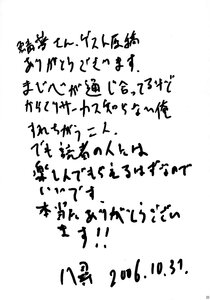 さん、ゲスト原稿
ありがとうございます。
まじへが通じ合ってるけど
サーカス知らない俺
すれちがう二人。
でも読者の人たちは
楽しんでもらえるはずなので
いいです。
本当にありがとうござい
ます!!
2006.10.31.